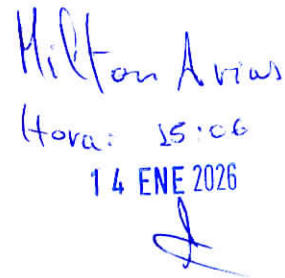 Milton Arias
Hora: 15:06
14 ENE 2026